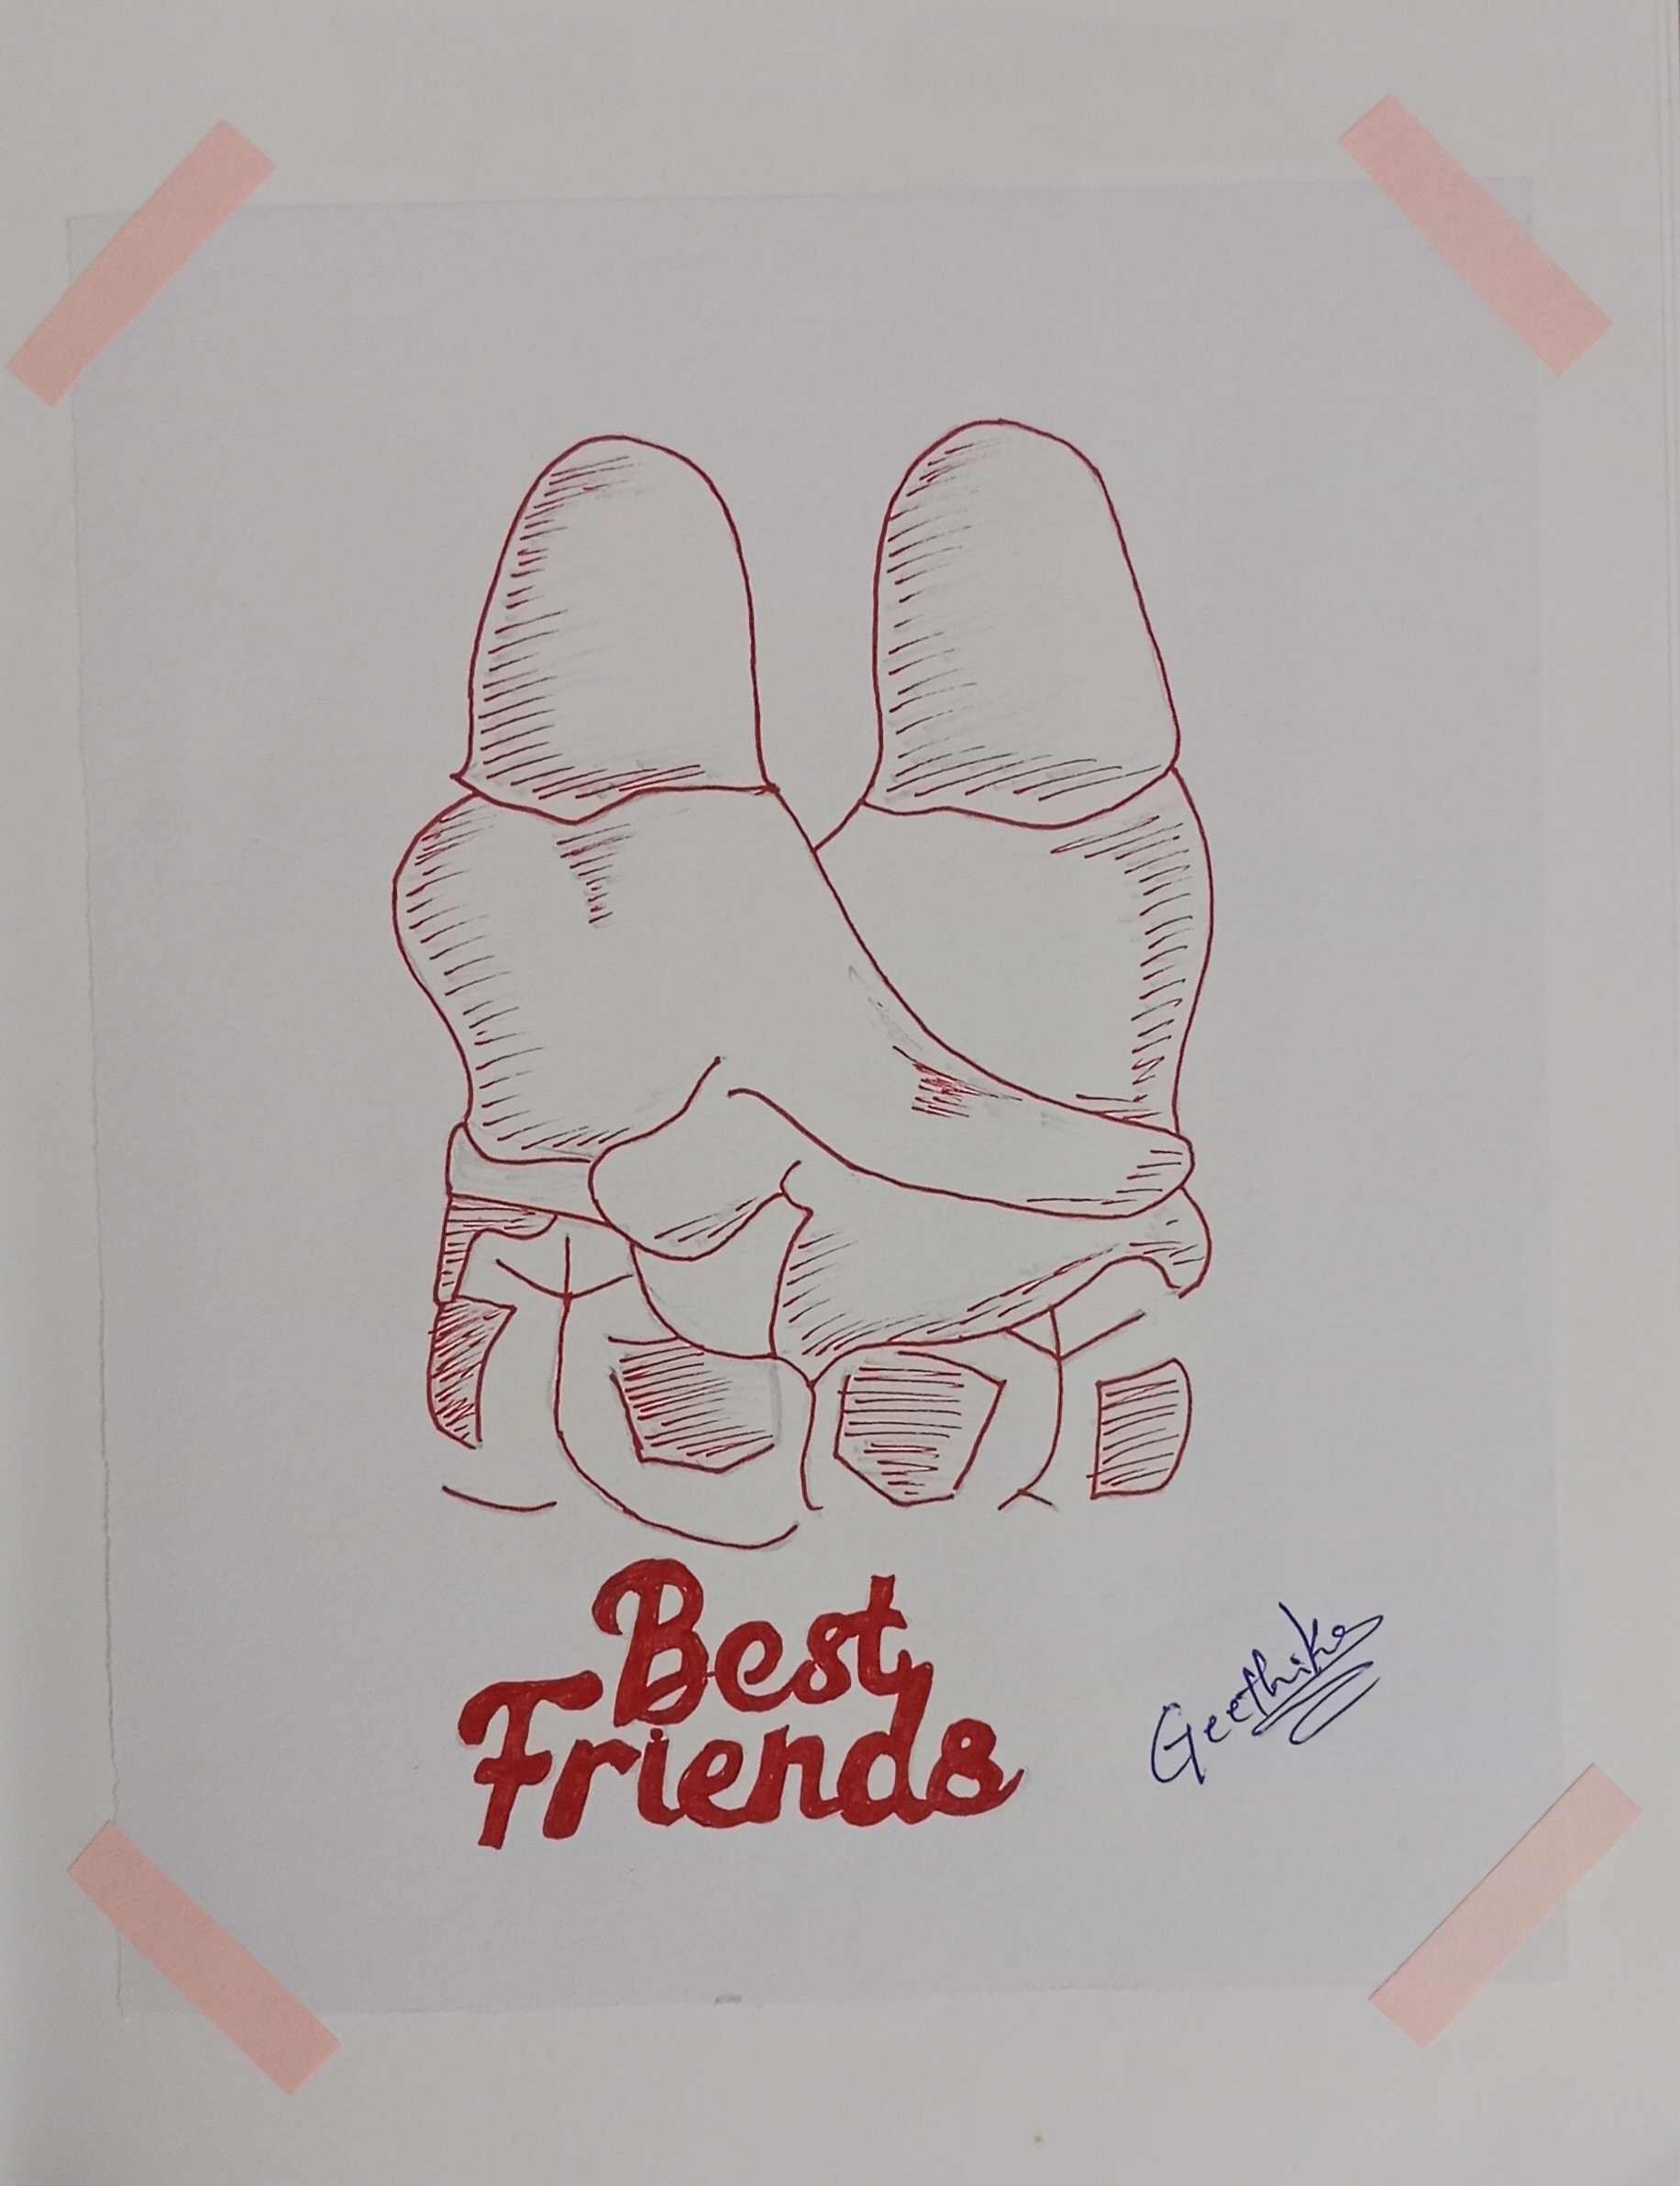 Best
Friends
Geethika